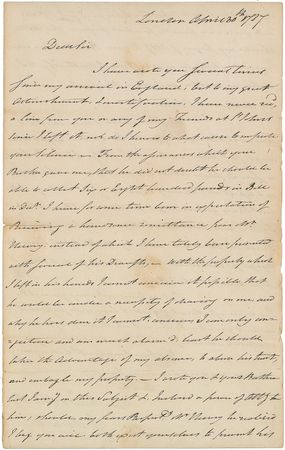 London April 30th 1787
Dear Sir
I have wrote you several times
since my arrival in England; but to my great
Astonishment & mortification, I have never rec'd
a line from you or any of my Friends at St.
since I left it, nor do I know to what cause to impute
your silence — From the assurances which your
Brother gave me, that he did not doubt he should be
able to collect Six or Eight hundred pounds in Bills
I have for some time been in expectation of
Receiving a handsome remittance from Mr
instead of which I have lately been presented
with several of his Drafts, — With the property which
I left in his hands I cannot conceive it possible that
he could be under a necessity of drawing on me, and
why he has done it I cannot conceive; I can only con-
jecture and am most alarm'd least he should
take the Advantage of my absence, to abuse his trust,
and embezzle my property — I wrote you & your Brother
last on this Subject & Inclosed a power of Atty to
him; should my fears Respect'g Mr be realized
I beg you will both exert yourselves to prevent his